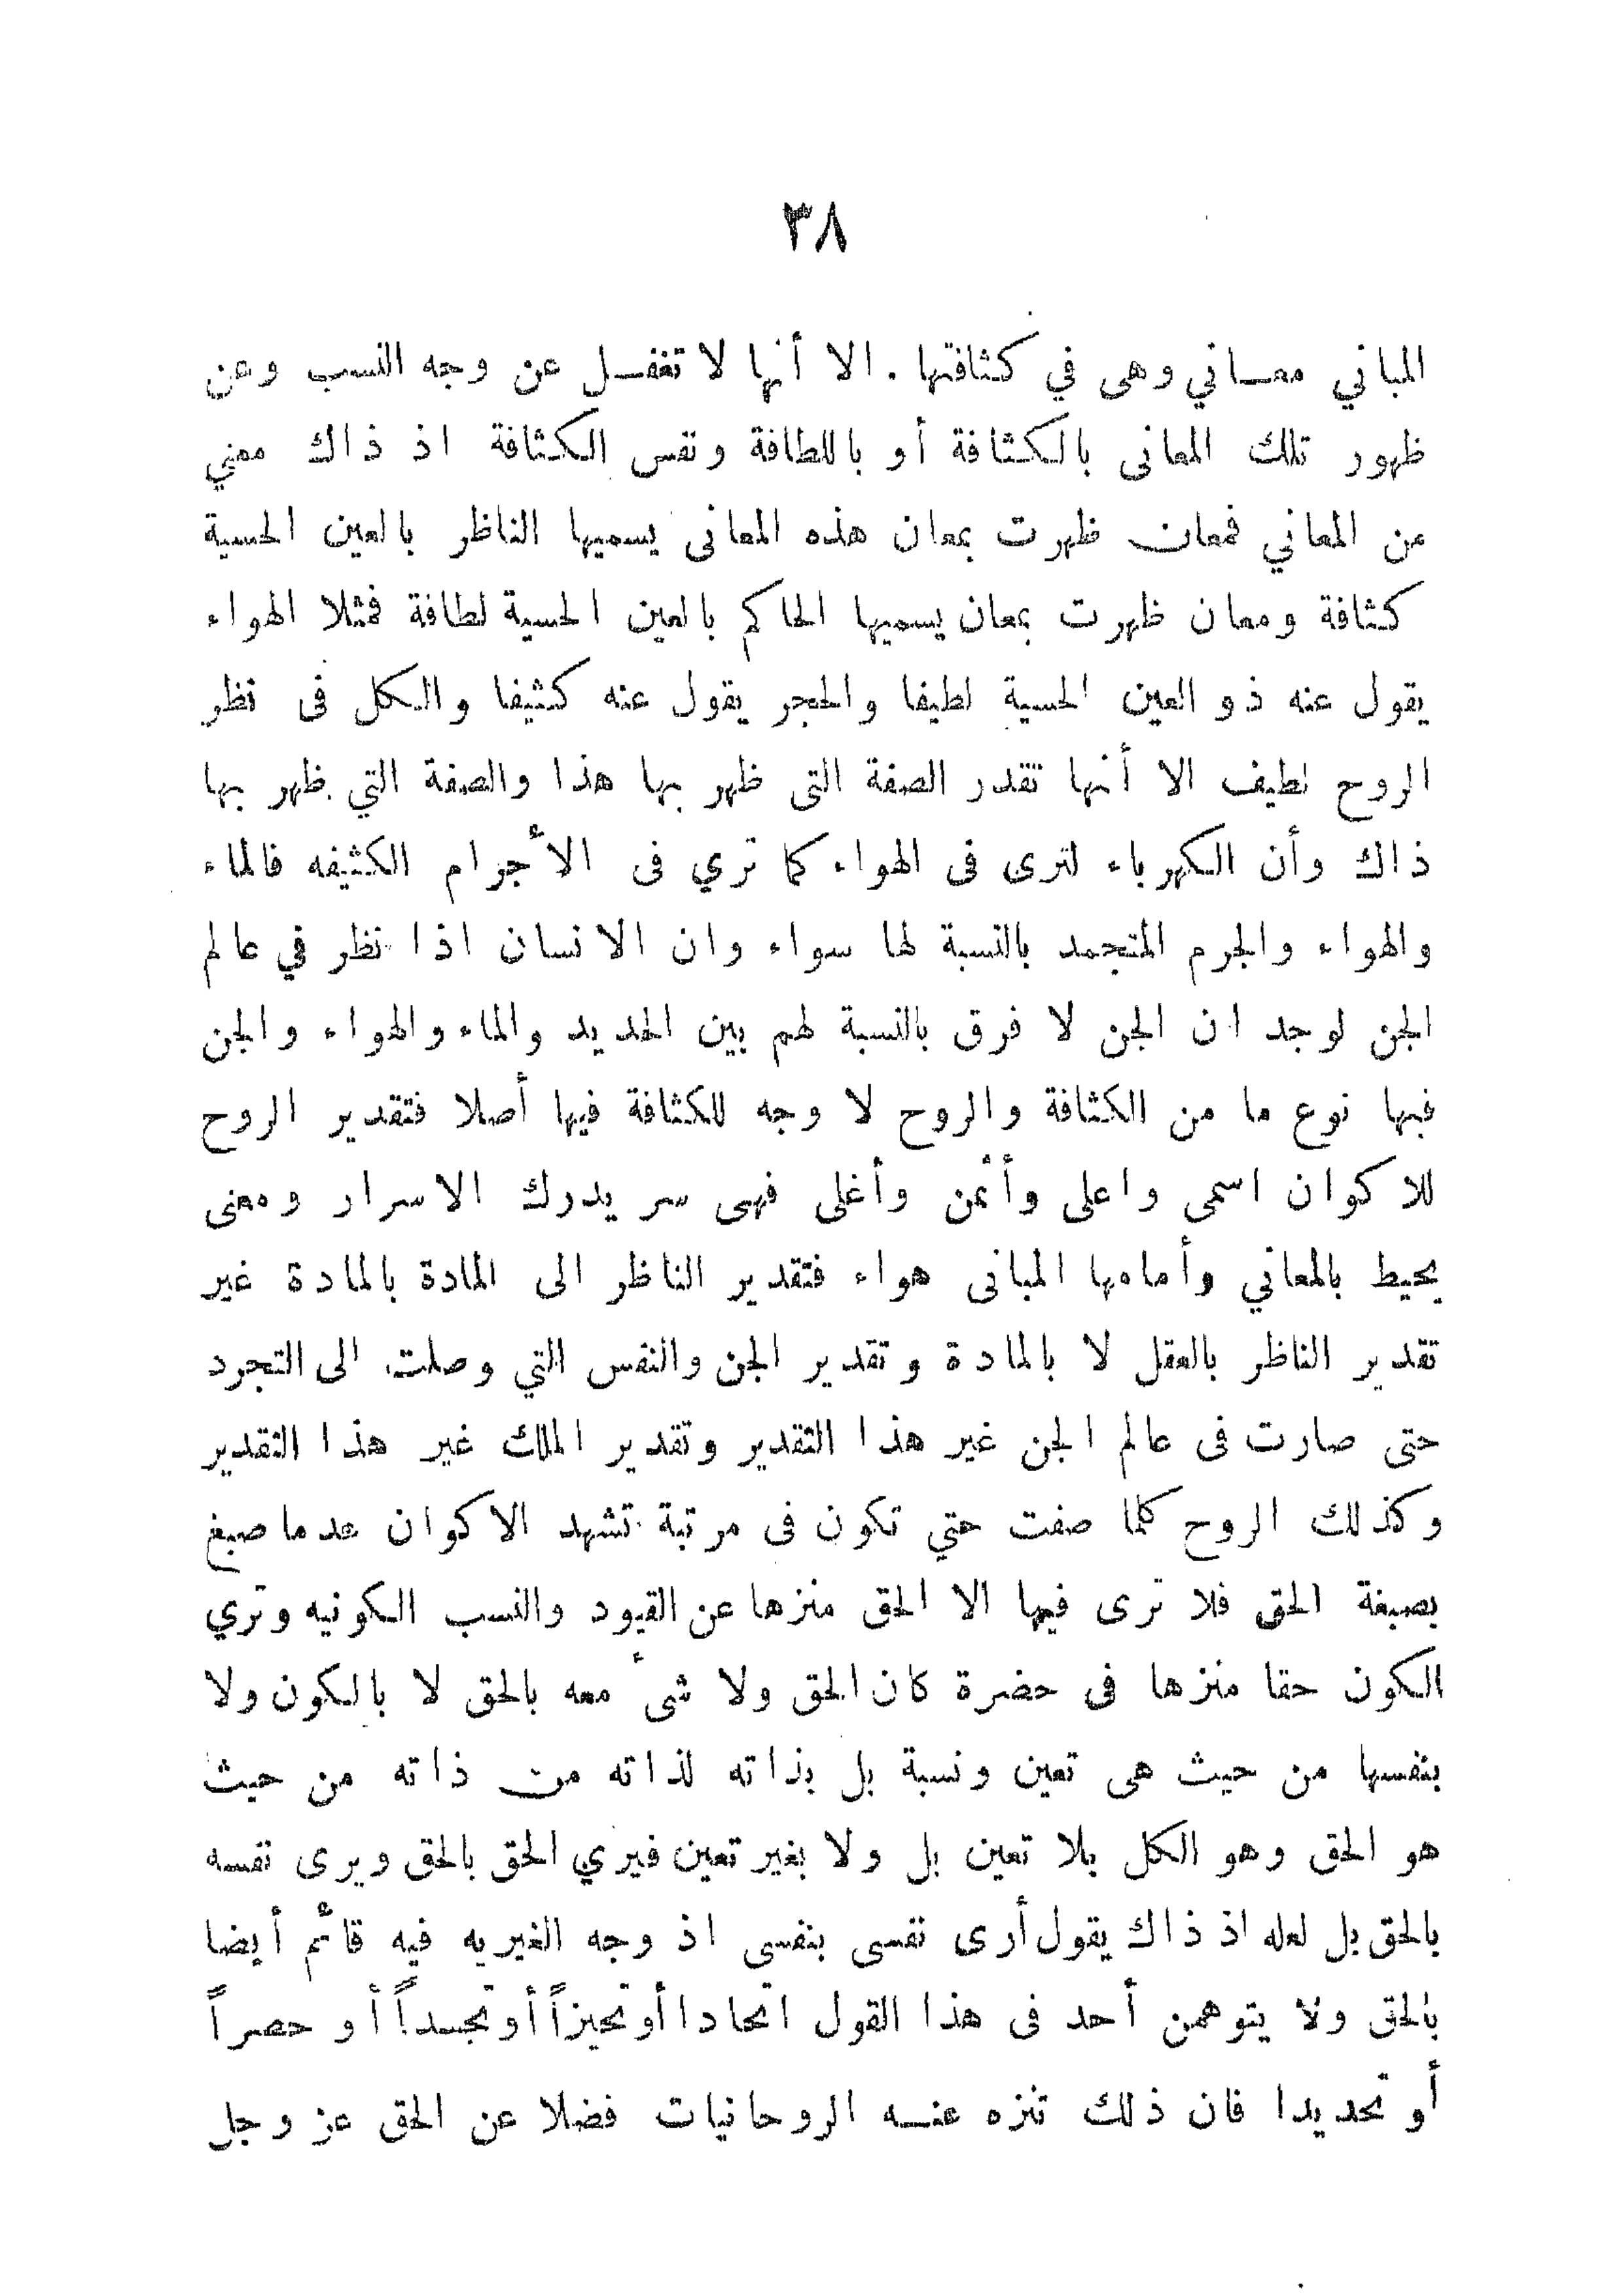 ٣٨
المباني معـاني وهى في كثافتها . الا أنها لا تغفـل عن وجه النسب وعن
ظهور تلك المعانى بالكثافة أو باللطافة ونفس الكثافة اذ ذاك معني
من المعاني فمعان ظهرت بمعان هذه المعانى يسميها الناظر بالعين الحسية
كثافة ومعان ظهرت بمعان يسميها الحاكم بالعين الحسية لطافة فمثلا الهواء
يقول عنه ذو العين الحسية لطيفا والحجر يقول عنه كثيفا والكل فى نظر
الروح لطيف الا أنها تقدر الصفة التى ظهر بها هذا والصفة التي ظهر بها
ذاك وأن الكهرباء لترى فى الهواء كما تري فى الأجرام الكثيفه فالماء
والهواء والجرم المتجمد بالنسبة لها سواء وان الانسان اذا نظر في عالم
الجن لوجد ان الجن لا فرق بالنسبة لهم بين الحديد والماء والهواء والجن
فيها نوع ما من الكثافة والروح لا وجه للكثافة فيها أصلا فتقدير الروح
للاكوان اسمى واعلى وأثمن وأغلى فهى سر يدرك الاسرار ومعنى
يحيط بالمعاني وأمامها المبانى هواء فتقدير الناظر الى المادة بالمادة غير
تقدير الناظر بالعقل لا بالمادة وتقدير الجن والنفس التي وصلت الى التجرد
حتى صارت فى عالم الجن غير هذا التقدير وتقدير الملك غير هذا التقدير
وكذلك الروح كلما صفت حتي تكون فى مرتبة تشهد الاكوان عدما صبغ
بصبغة الحق فلا ترى فيها الا الحق منزها عن القيود والنسب الكونيه وتري
الكون حقا منزها فى حضرة كان الحق ولا شىء معه بالحق لا بالكون ولا
بنفسها من حيث هى تعين ونسبة بل بذاته لذاته من ذاته من حيث
هو الحق وهو الكل بلا تعين بل ولا بغير تعين فيري الحق بالحق ويرى نفسه
بالحق بل لعله اذ ذاك يقول أرى نفسى بنفسى اذ وجه الغيريه فيه قائم أيضا
بالحق ولا يتوهمن أحد فى هذا القول اتحادا أو تحيزاً أو تجسداً أو حصراً
أو تحديدا فان ذلك تنزه عنـه الروحانيات فضلا عن الحق عز وجل